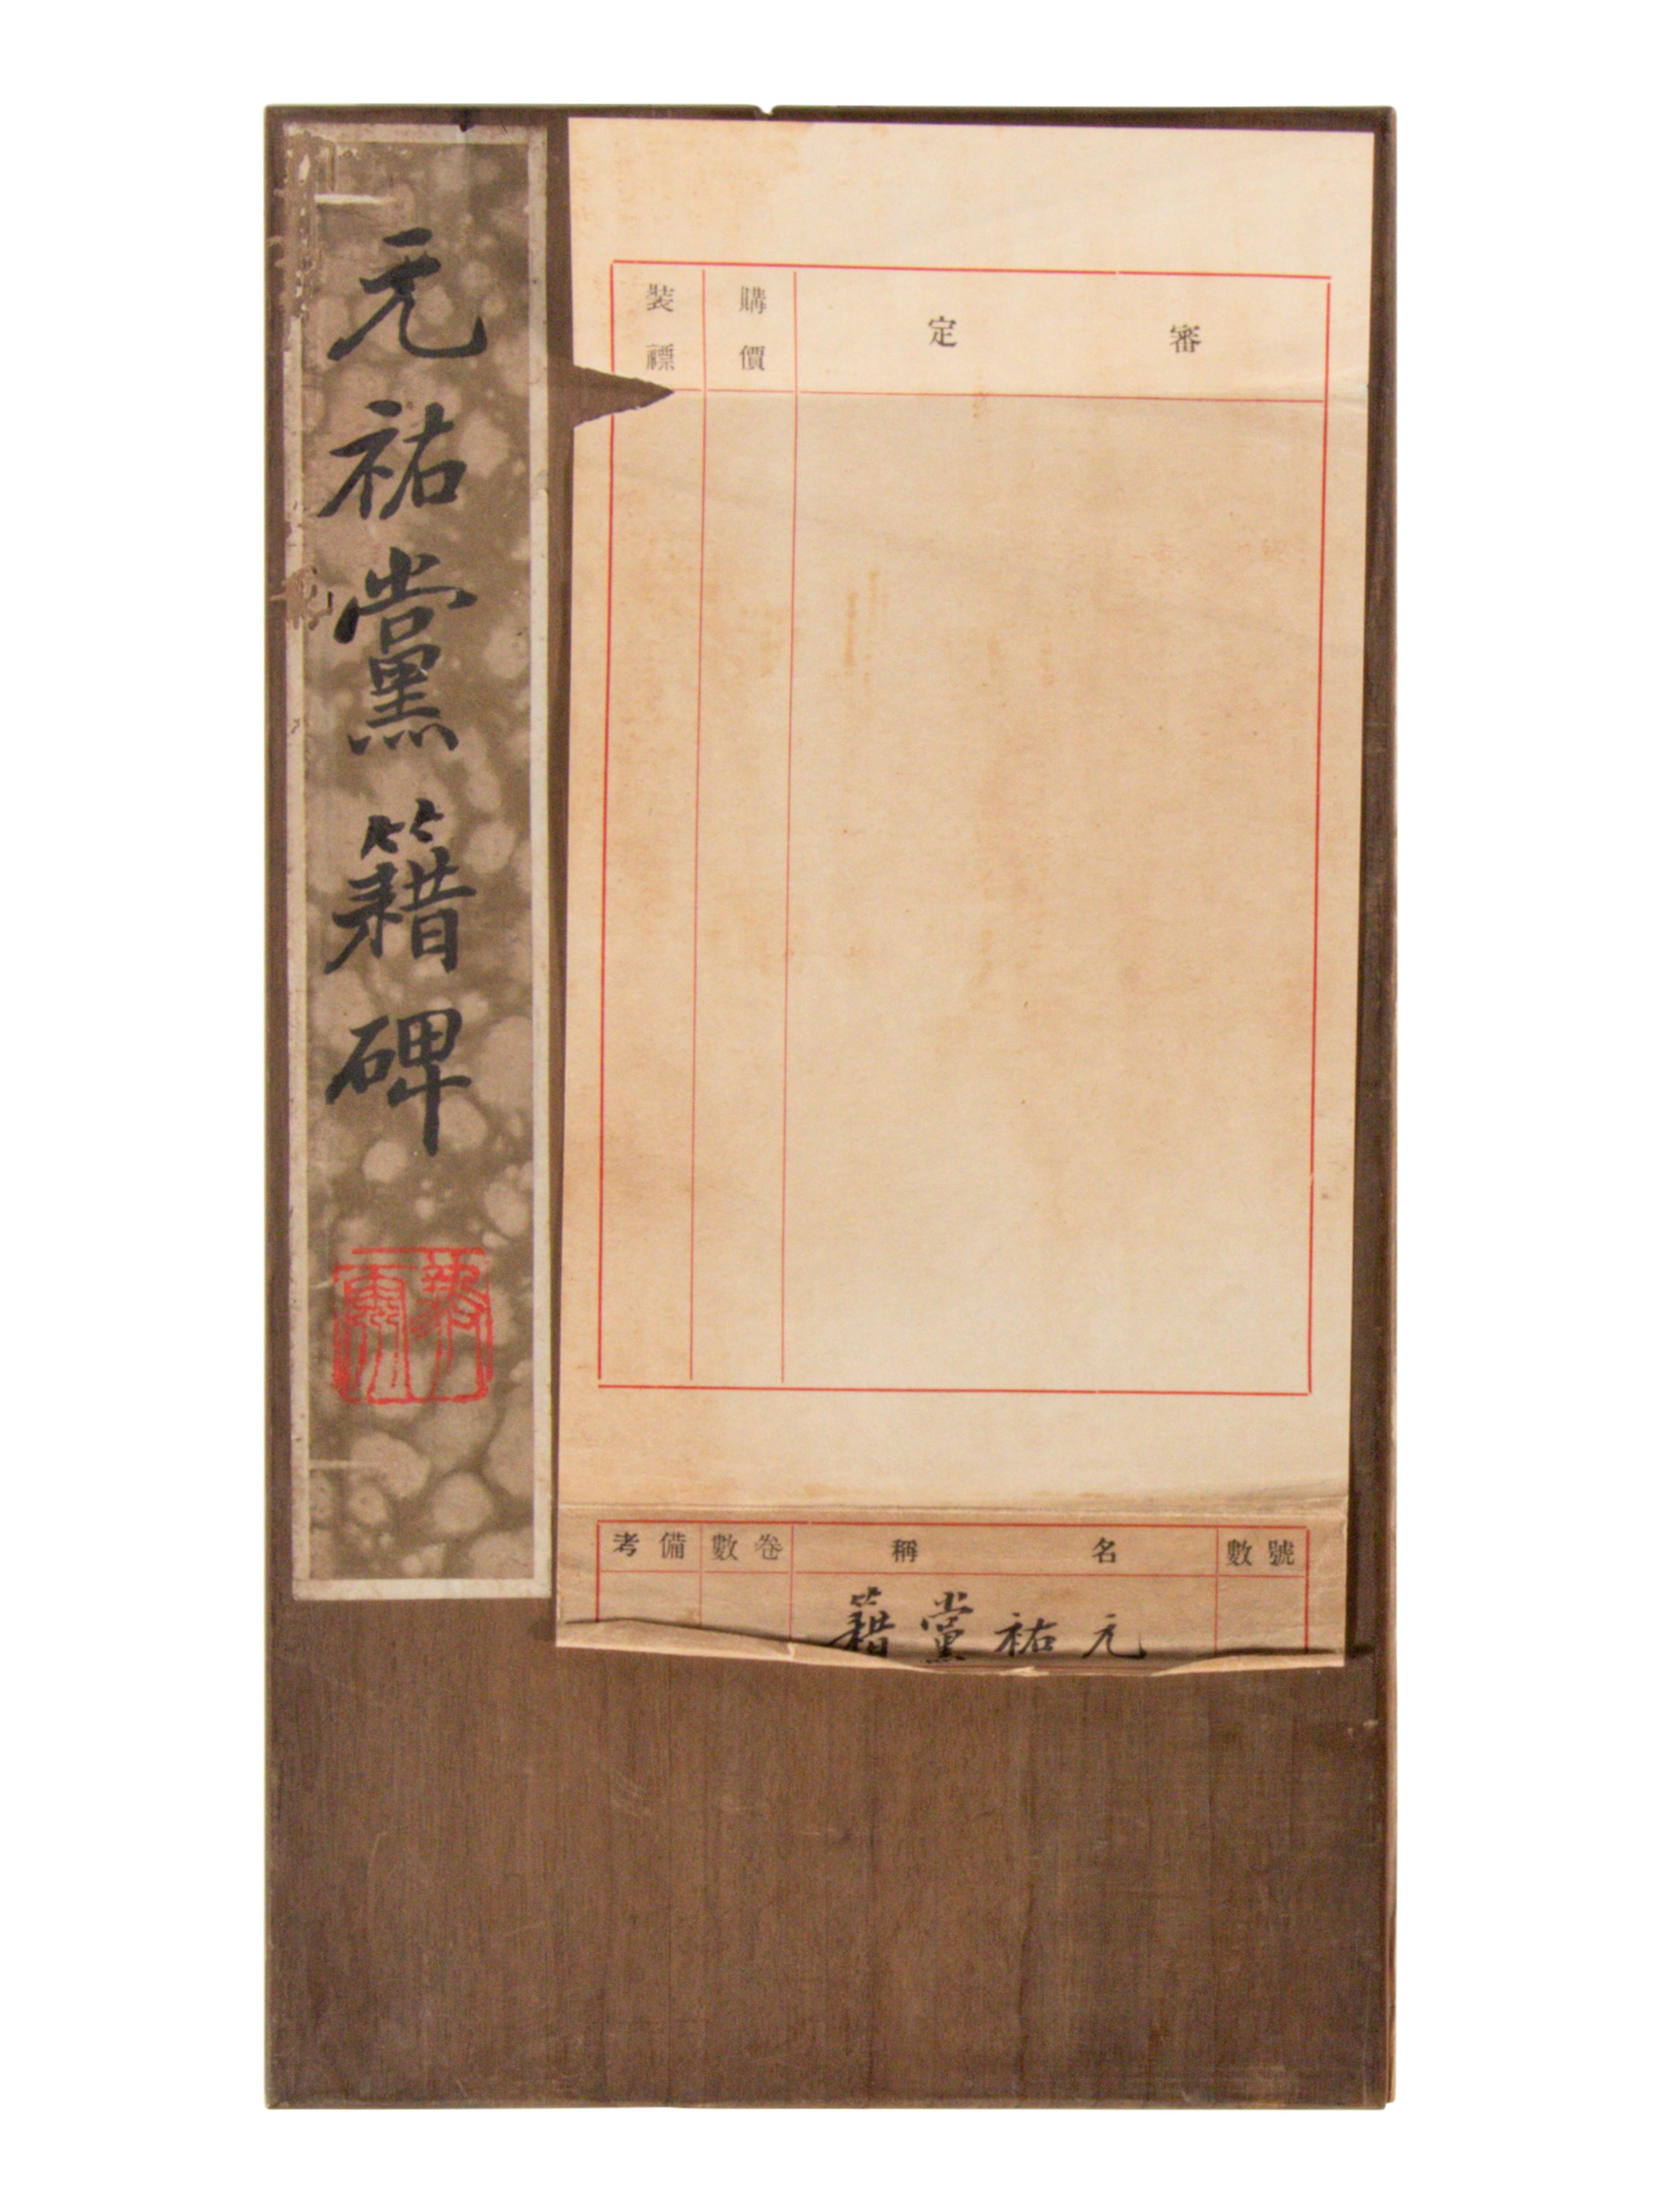 元祐黨籍碑
審定
購價
裝標
號數
名稱
卷數
備考
元祐黨籍